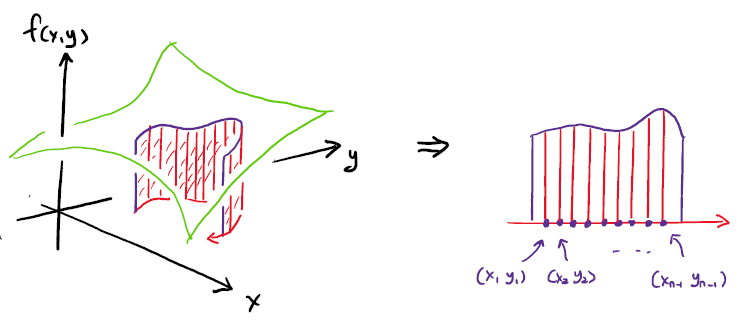 f(x,y)
y
⇒
x
(x₁ y₁) (x₂ y₂) - - - (xₙ₋₁ yₙ₋₁)